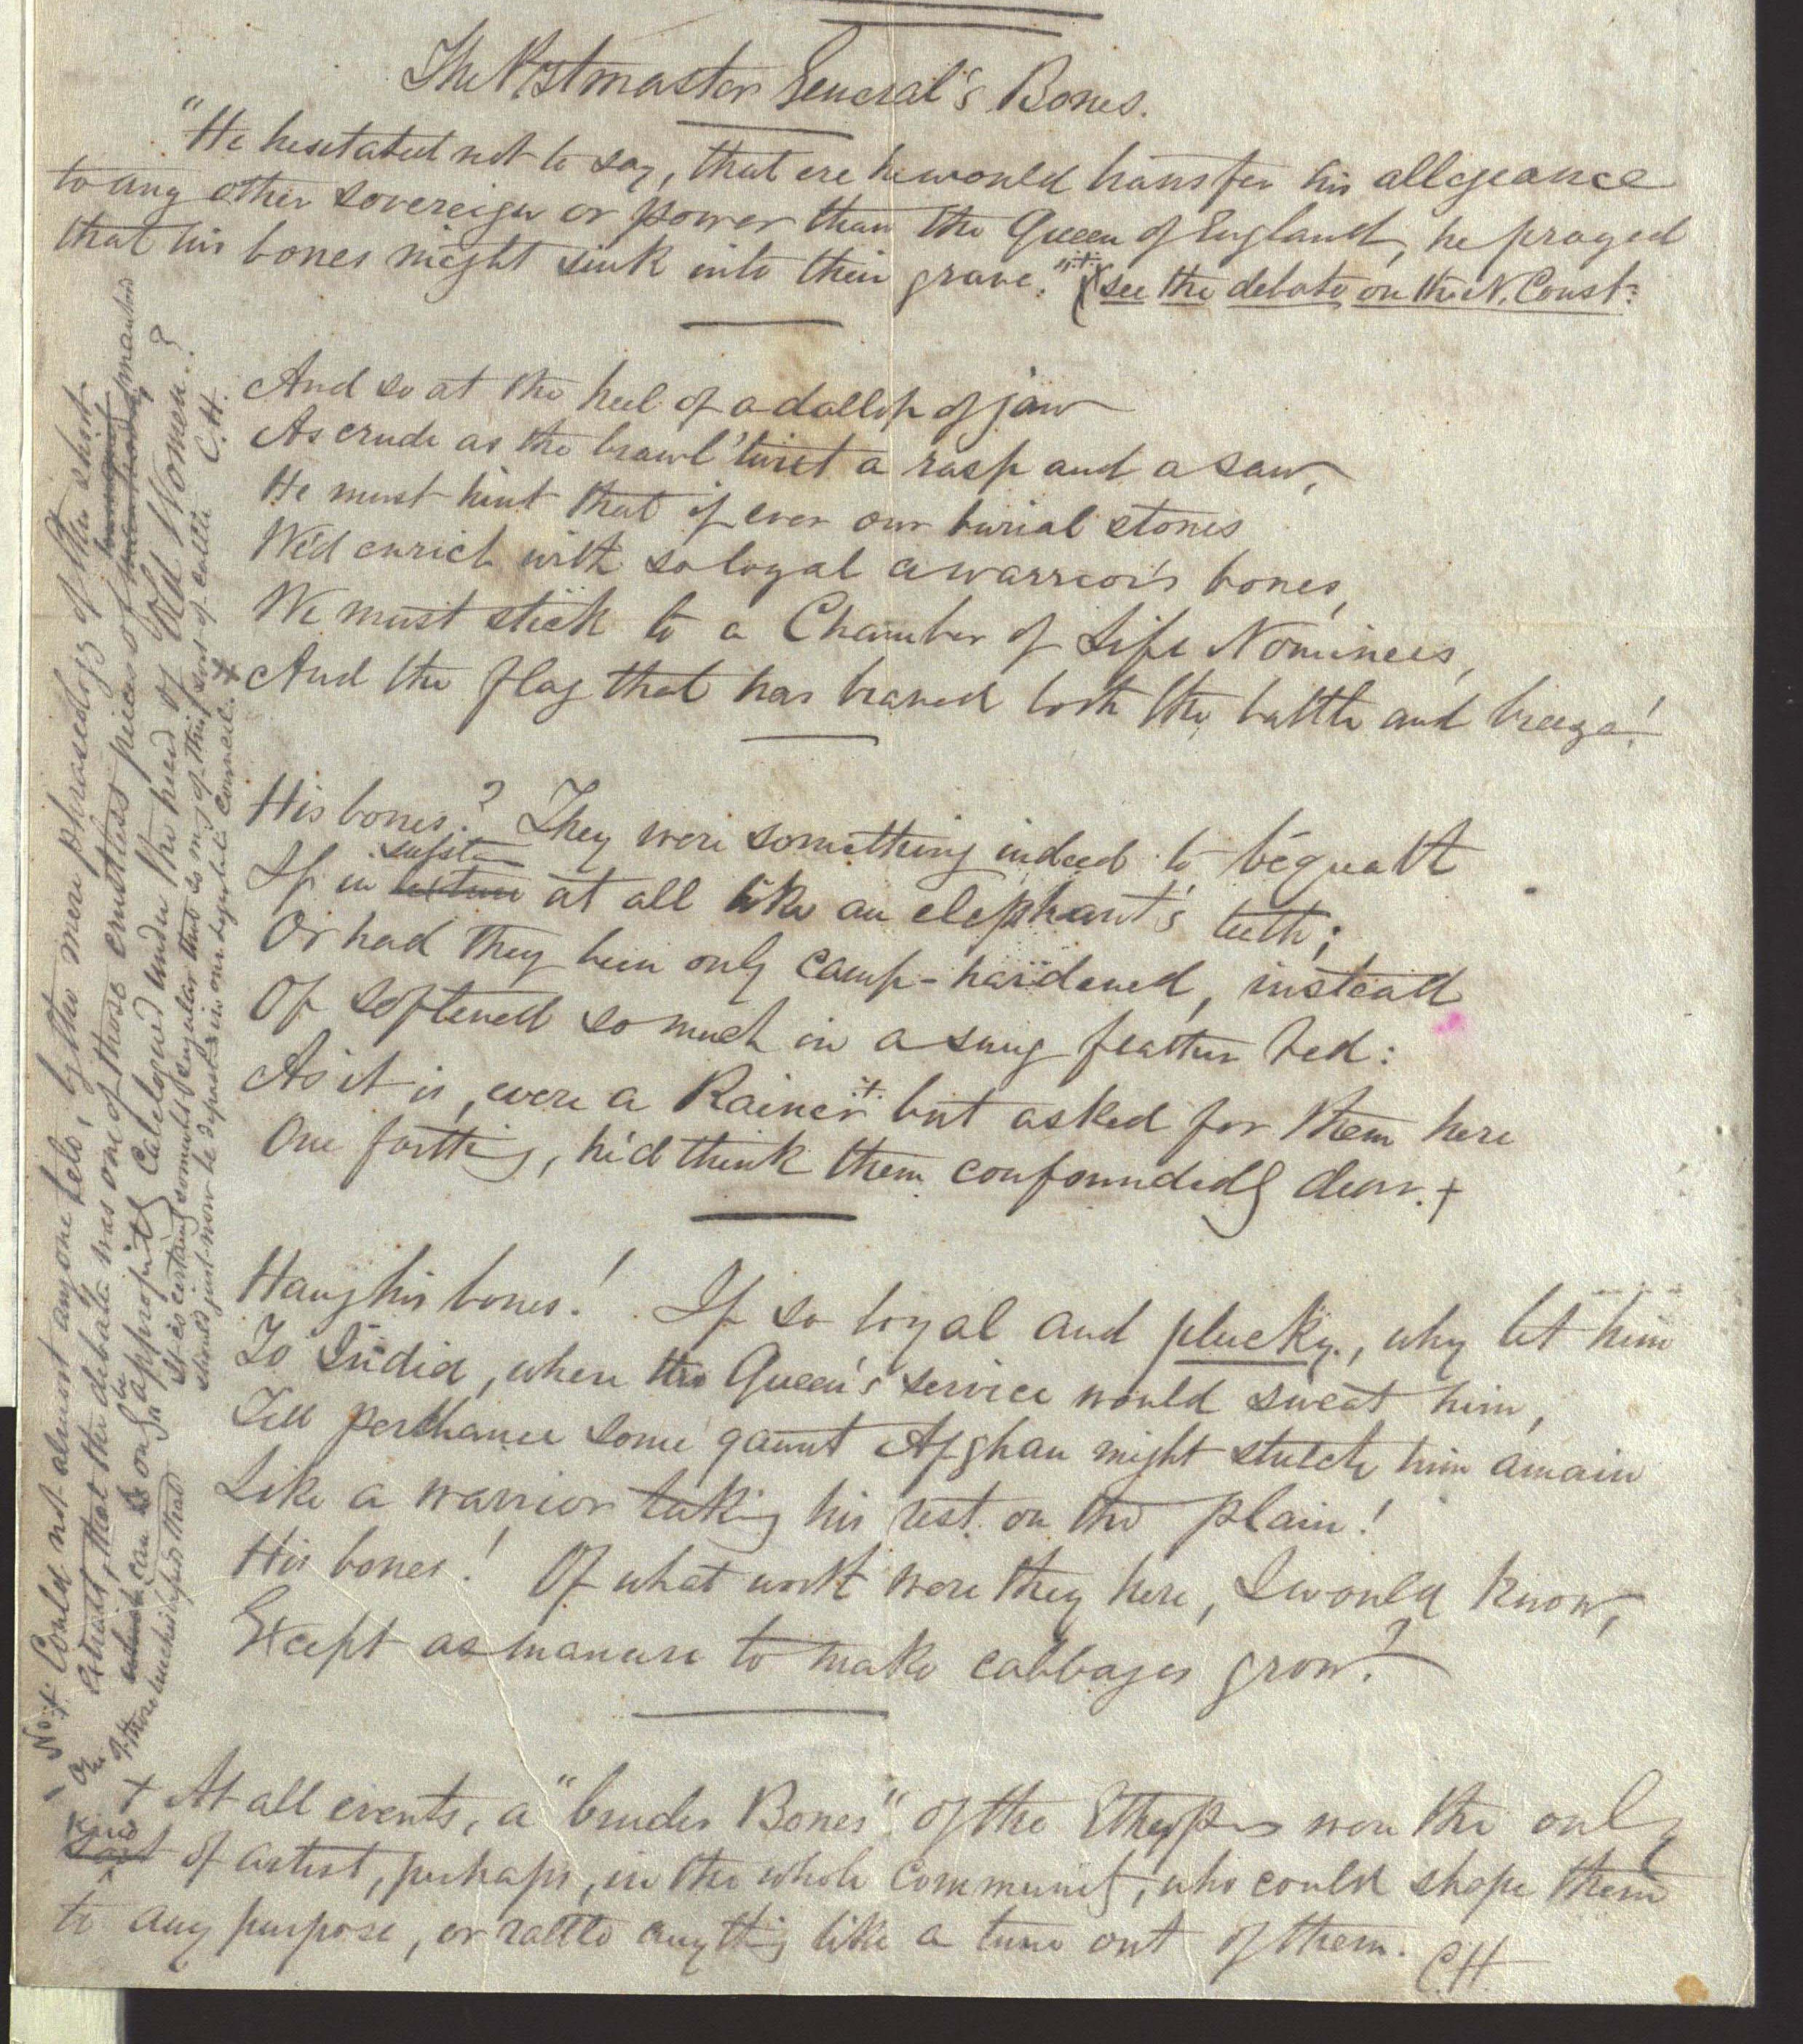 The Postmaster General's Bones.
"He hesitated not to say, that ere he would transfer his allegeance
to any other sovereign or power than the Queen of England, he prayed
that his bones might sink into their grave." + (see the debate on the N. Const:
And so at the heel of a dollop of jaw
As crude as the brawl 'twixt a rasp and a saw,
He must hint that if ever our burial stones
We'd enrich with so loyal a warrior's bones,
We must stick to a Chamber of Life Nominees,
And the flag that has braved both the battle and breeze!
His bones? They were something indeed to bequath
substan
If in texture at all like an elephant's teeth;
Or had they been only camp-hardened, instead
Of softened so much in a snug feather bed:
As it is, were a Rainer + but asked for them here
One farthing, he'd think them confoundedly dear. +
Hang his bones! If so loyal and plucky, why let him
To India, where the Queen's service would sweat him,
Till perchance some gaunt Afghan might stretch him amain
Like a warrior taking his rest on the plain!
His bones! Of what worth were they here, I would know,
Except as manure to make cabbages grow?
+ At all events, a "bruder Bones" of the were the only
kind
sort of artist, perhaps, in the whole community, who could shape them
to any purpose, or rattle anything like a tune out of them. C.H.
+ Not: Could not almost any one tell, by the mere phraseology of the short
extract, that the debate was one of those crustiest pieces of
which can be only appropriately catalogued under the head of Old Women?
It is certainly somewhat peculiar that so many of this sort of cattle C.H.
should just now be depastured in our Legislative Council. +